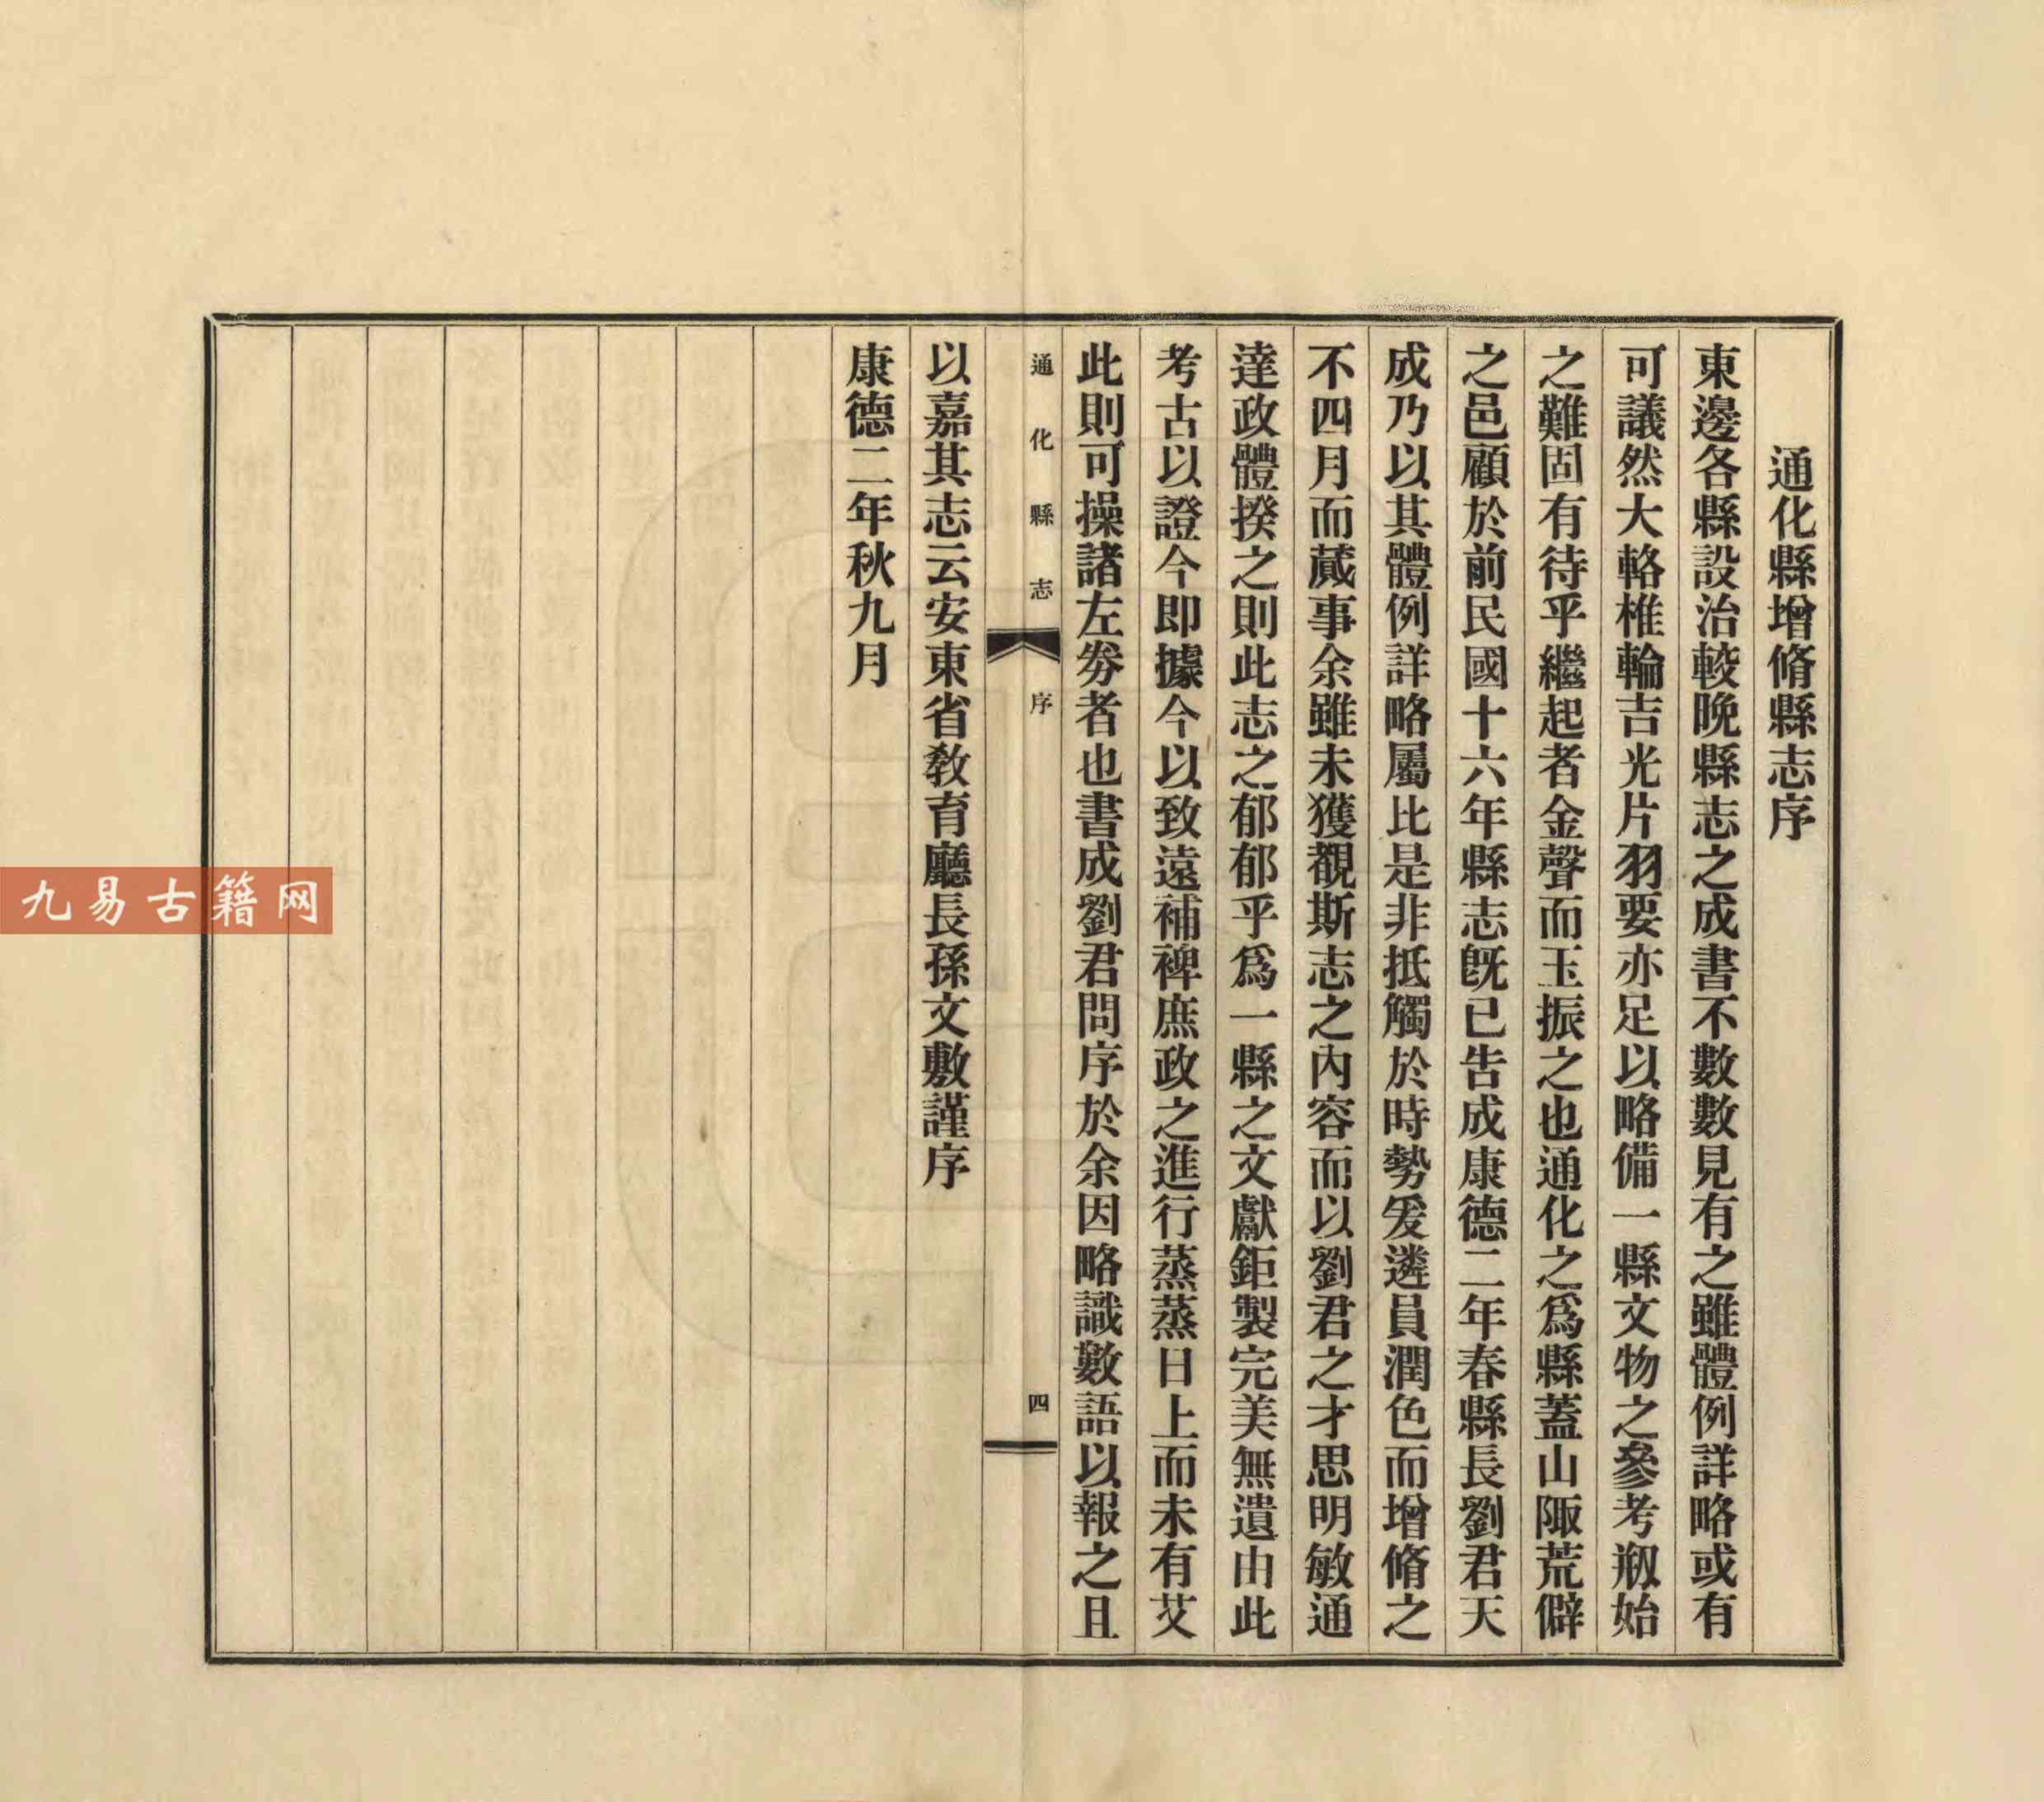 通化縣增脩縣志序
東邊各縣設治較晚縣志之成書不數數見有之雖體例詳略或有
可議然大輅椎輪吉光片羽要亦足以略備一縣文物之參考剏始
之難固有待乎繼起者金聲而玉振之也通化之爲縣蓋山陬荒僻
之邑顧於前民國十六年縣志旣已告成康德二年春縣長劉君天
成乃以其體例詳略屬比是非抵觸於時勢爰遴員潤色而增脩之
不四月而蕆事余雖未獲覩斯志之內容而以劉君之才思明敏通
達政體揆之則此志之郁郁乎爲一縣之文獻鉅製完美無遺由此
考古以證今即據今以致遠補裨庶政之進行蒸蒸日上而未有艾
此則可操諸左劵者也書成劉君問序於余因略識數語以報之且
通化縣志
序
四
以嘉其志云安東省敎育廳長孫文敷謹序
康德二年秋九月
九易古籍网